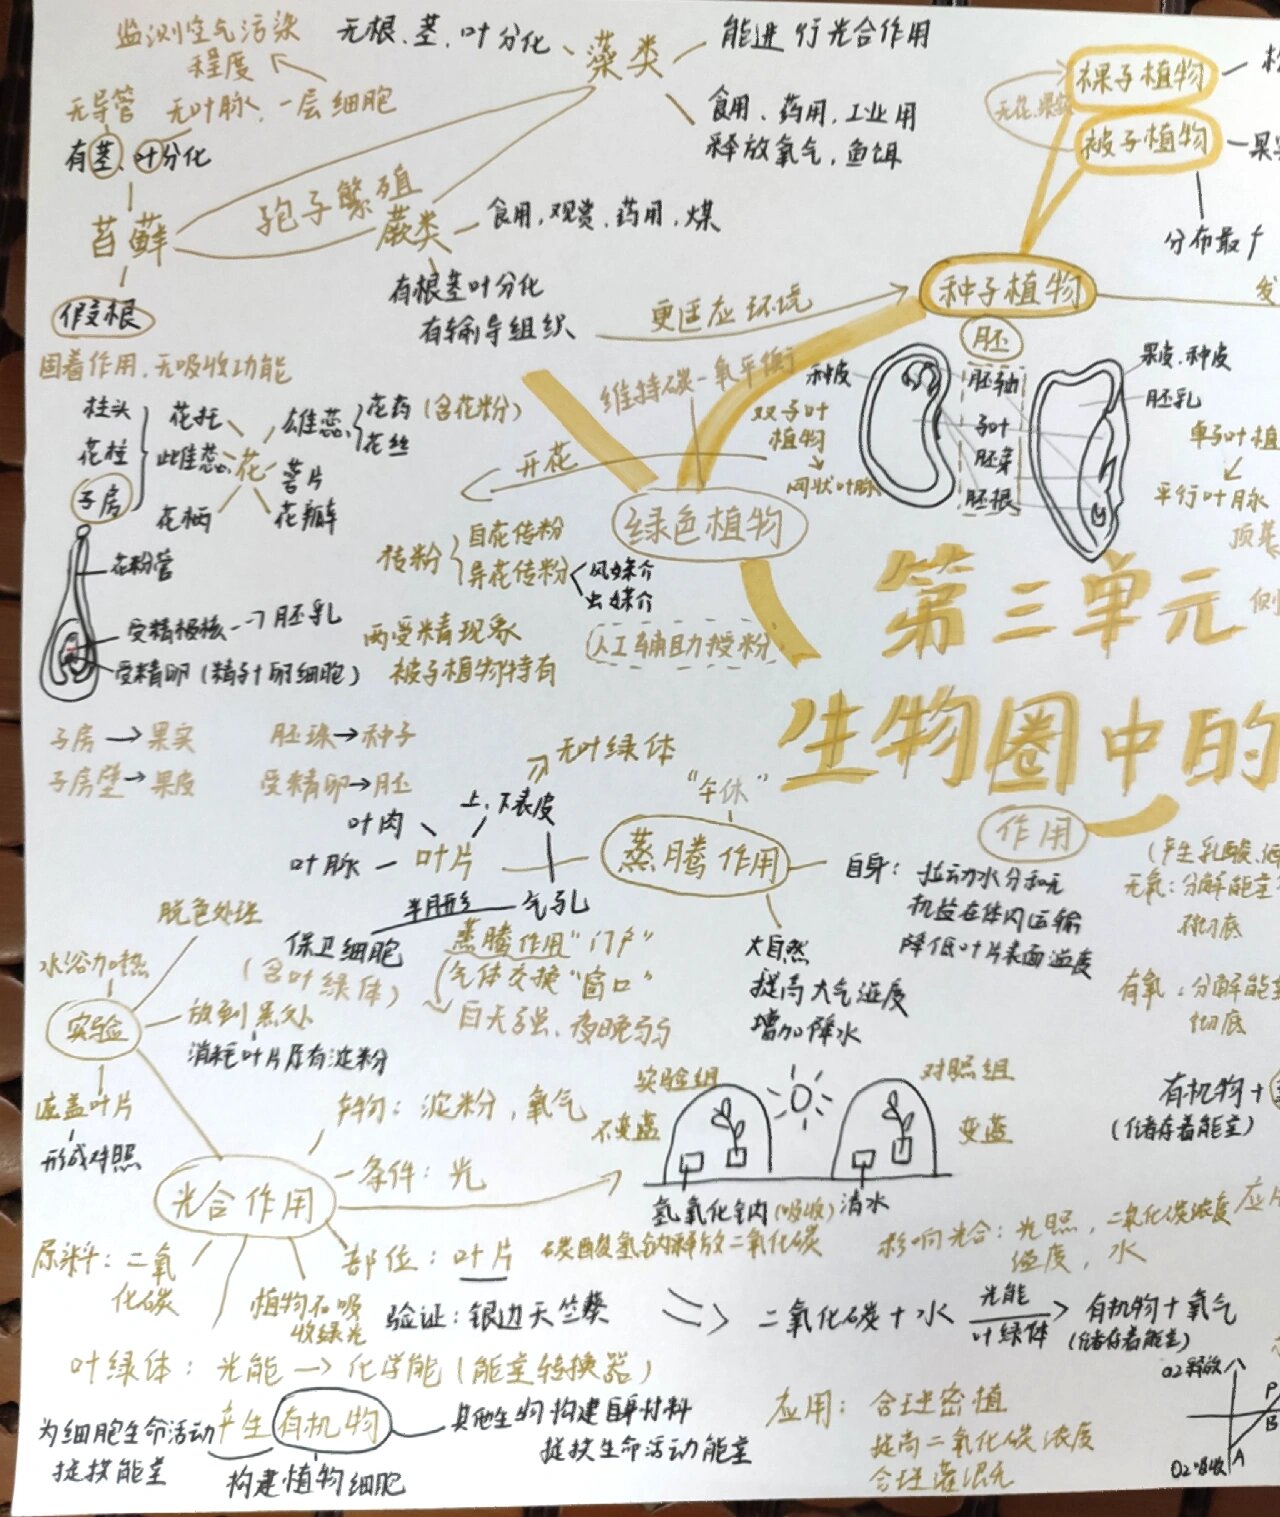 监测空气污染
程度
无根、茎、叶分化
藻类
能进行光合作用
食用、药用、工业用
释放氧气,鱼饵
无导管
无叶脉、一层细胞
有茎、叶分化
苔藓
孢子繁殖
蕨类
食用,观赏,药用,煤
有根茎叶分化
有输导组织
假根
固着作用,无吸收功能
裸子植物
被子植物
无花、果实
分布最
种子植物
更适应环境
维持碳—氧平衡
胚
种皮
胚轴
子叶
胚芽
胚根
果皮、种皮
胚乳
双子叶
植物
网状叶脉
单子叶植
平行叶脉
柱头
花柱
子房
花托
雌蕊
花柄
花
雄蕊
花药(含花粉)
花丝
萼片
花瓣
开花
绿色植物
传粉
自花传粉
异花传粉
风媒介
虫媒介
人工辅助授粉
花粉管
受精极核→胚乳
受精卵(精子+卵细胞)
两受精现象
被子植物特有
第三单元
生物圈中的
子房→果实
胚珠→种子
子房壁→果皮
受精卵→胚
无叶绿体
上、下表皮
叶肉
叶脉
叶片
气孔
半月形
保卫细胞
(含叶绿体)
“午休”
蒸腾作用
蒸腾作用“门户”
气体交换“窗口”
白天强、夜晚弱
自身:拉动水分和无
机盐在体内运输
降低叶片表面温度
大自然
提高大气湿度
增加降水
作用
(产生乳酸、
无氧:分解能
不彻底
有氧:分解能
彻底
有机物+
(储存着能量)
脱色处理
水浴加热
实验
放到黑处
消耗叶片原有淀粉
遮盖叶片
形成对照
产物:淀粉,氧气
条件:光
光合作用
部位:叶片
原料:二氧
化碳
植物不吸
收绿光
验证:银边天竺葵
实验组
不变蓝
对照组
变蓝
氢氧化钠(吸收)
清水
碳酸氢钠释放二氧化碳
影响光合:光照,二氧化碳浓度
温度,水
二氧化碳+水 光能 叶绿体 → 有机物+氧气
(储存着能量)
叶绿体:光能→化学能(能量转换器)
产生有机物
为细胞生命活动
提供能量
构建植物细胞
其他生物构建自身材料
提供生命活动能量
应用:合理密植
提高二氧化碳浓度
合理灌溉
O2释放
O2吸收
A
B
P